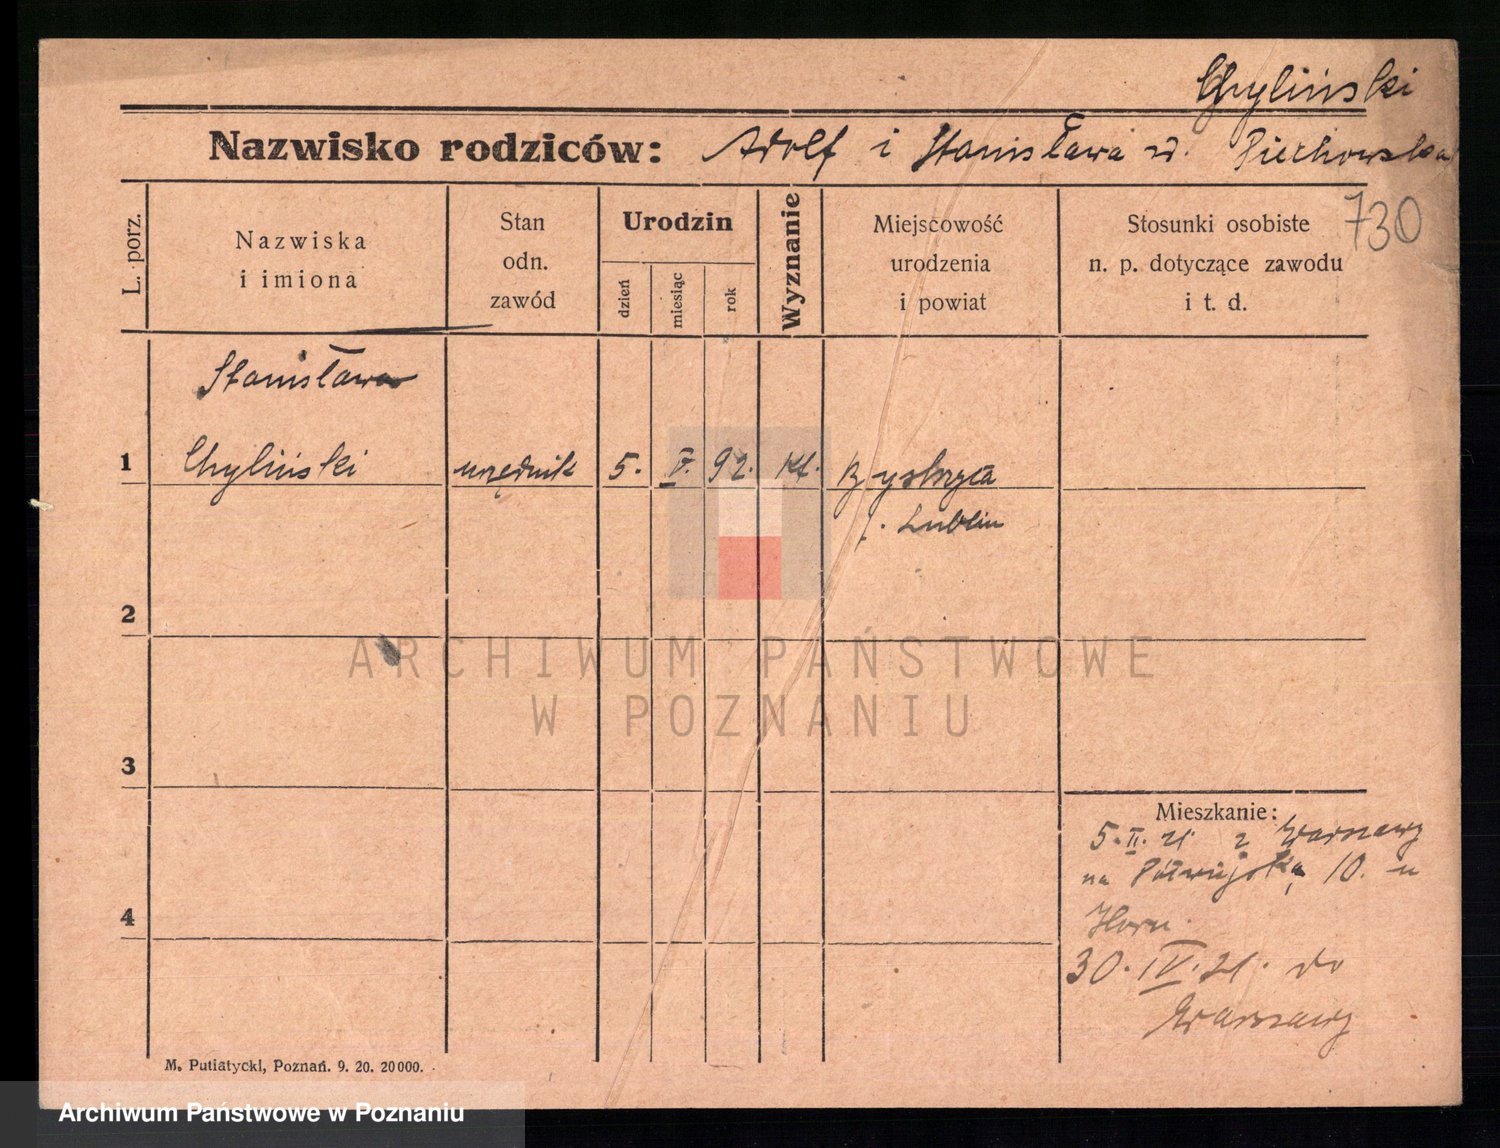 Chyliński
Nazwisko rodziców: Adolf i Stanisława z d. Piechowska
730
L. porz.
Nazwiska
i imiona
Stan
odn.
zawód
Urodzin
dzień
miesiąc
rok
Wyznanie
Miejscowość
urodzenia
i powiat
Stosunki osobiste
n. p. dotyczące zawodu
i t. d.
Stanisław
1 Chyliński urzędnik 5. V. 92. kt. Bystrzyca
p. Lublin
2
3
Mieszkanie:
5. II. 21 z Warszawy
na Półwiejską 10. u
Horn
4
30. IV. 21. do
Warszawy
M. Putiatycki, Poznań. 9. 20. 20000.
ARCHIWUM PAŃSTWOWE
W POZNANIU
Archiwum Państwowe w Poznaniu